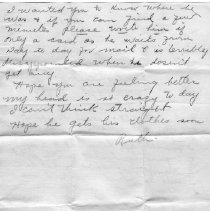 I wanted you to know where he
was & if you can find a few
minutes please write him if
only a card as he waits from
Day to day for mail & is terribly
disappointed when he doesn't
get any
Hope you are feeling better
my head is so crazy to day
I can't think straight
Hope he gets his clothes soon
Ruth